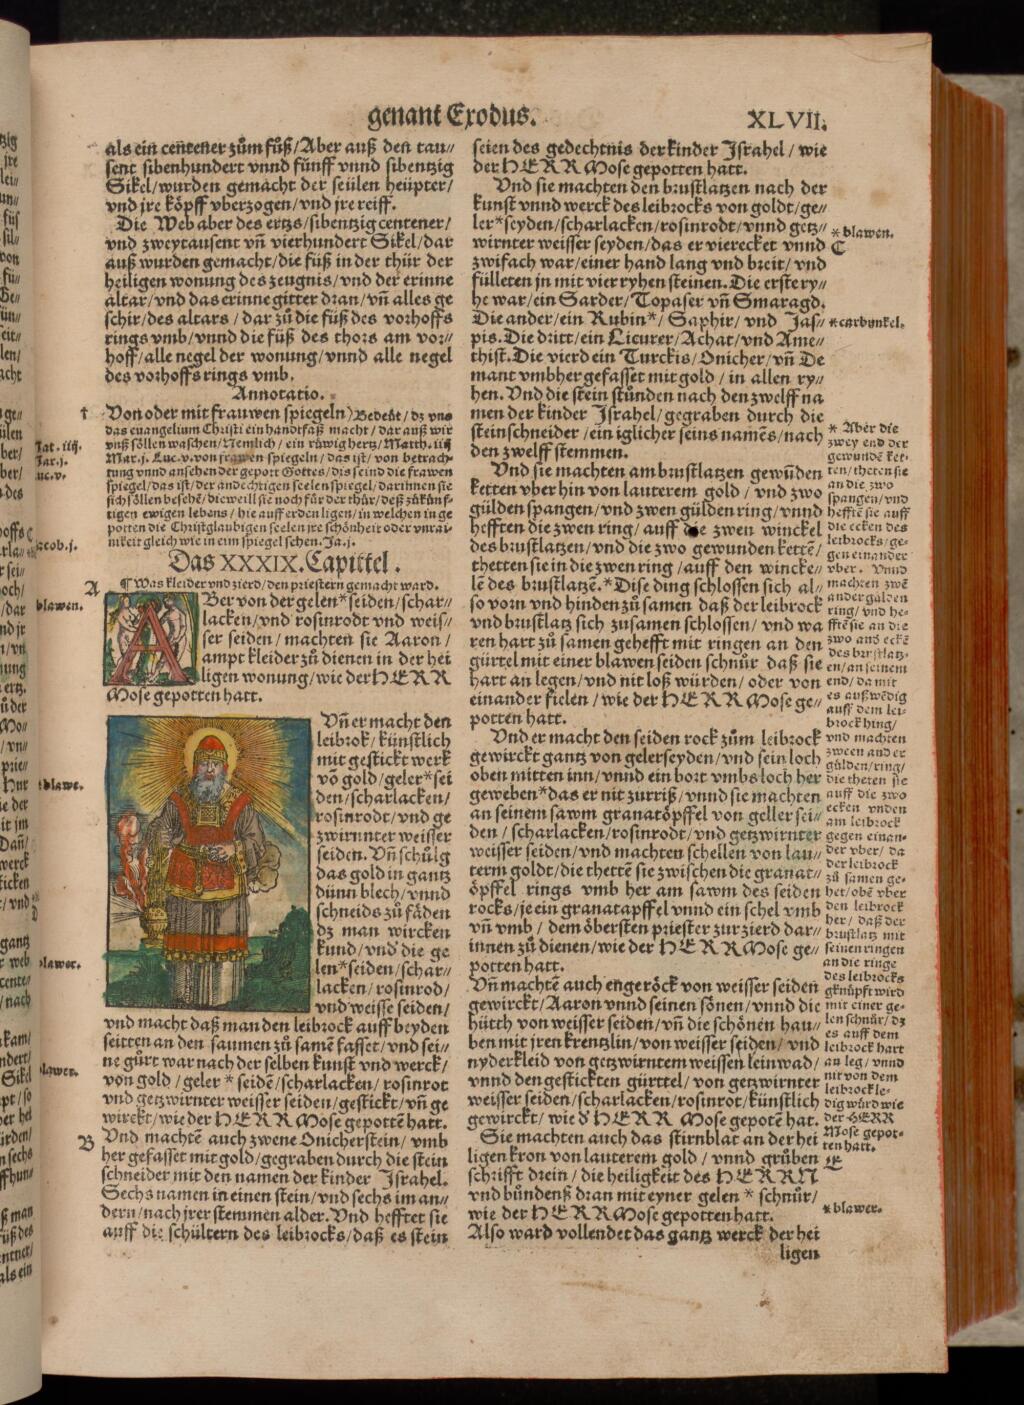 genant Exodus.
XLVII.
als ein centener zům fůß/Aber auß den tau//
sent sibenhundert vnnd fünff vnnd sibentzig
Sikel/wurden gemacht der seülen heüpter/
vnd jre köpff vberzogen/vnd jre reiff.
Die Web aber des ertzs/sibentzig centener/
vnd zweytausent vñ vierhundert Sikel/dar
auß wurden gemacht/die fůß in der thür der
heiligen wonung des zeugnis/vnd der erinne
altar/vnd das erinne gitter dran/vñ alles ge
schir/des altars/dar zů die fůß des vorhoffs
rings vmb/vnnd die fůß des thors am vor//
hoff/alle negel der wonung/vnnd alle negel
des vorhoffs rings vmb.
Annotatio.
† Von oder mit frauwen spiegeln) Bedeüt/dz vns
das euangelium Christi ein handtfaß macht/dar auß wir
vnß söllen waschen/Nemlich/ein rüwig hertz/Matth.iij
Mar.j. Luc.v. von frawen spiegeln/das ist/von betrach-
tung vnnd ansehen der geport Gottes/dis seind die frawen
spiegel/das ist/der andechtigen seelen spiegel/darinnen sie
sich söllen besehē/dieweill sie noch für der thür/deß zůkünf-
tigen ewigen lebens/hie auff erden ligen/in welchen in ge
potten die Christglaubigen seelen jre schönheit oder vnrai-
nikeit gleich wie in eim spiegel sehen. Ja.j.
Das XXXIX. Capittel.
¶ Was kleider vnd zierd/den priestern gemacht ward.
A
ABer von der gelen*seiden/schar//
lacken/vnd rosinrodt vnd weis//
ser seiden/machten sie Aaron/
ampt kleider zů dienen in der hei
ligen wonung/wie der HERR
Mose gepotten hatt.
Vñ er macht den
leibrok/künstlich
mit gestickt werk
võ gold/geler*sei
den/scharlacken/
rosinrodt/vnd ge
zwirnnter weisser
seiden. Vñ schůlg
das gold in gantz
dünn blech/vnnd
schneids zů fäden
dz man wircken
kund/vnd die ge
len*seiden/schar//
lacken/rosinrod/
vnd weisse seiden/
vnd macht daß man den leibrock auff beyden
seitten an den saumen zů samē fasset/vnd sei//
ne gürt war nach der selben kunst vnd werck/
von gold/geler * seidē/scharlacken/rosinrot
vnd getzwirnter weisser seiden/gestickt/vñ ge
wirckt/wie der HERR Mose gepottē hatt.
B
Vnd machtē auch zwene Onicherstein/vmb
her gefasset mit gold/gegraben durch die stein
schneider mit den namen der kinder Jsrahel.
Sechs namen in einen stein/vnd sechs im an//
dern/nach jrer stemmen alder. Vnd hefftet sie
auff die schültern des leibrocks/daß es stein
seien des gedechtnis der kinder Jsrahel/wie
der HERR Mose gepotten hatt.
Vnd sie machten den brustlatzen nach der
kunst vnnd werck des leibrocks von goldt/ge//
ler*seyden/scharlacken/rosinrodt/vnnd getz//
wirnter weisser seyden/das er vierecket vnnd
zwifach war/einer hand lang vnd breit/vnd
fülleten jn mit vier ryhen steinen. Die erste ry//
he war/ein Sarder/Topaser vñ Smaragd.
Die ander/ein Rubin*/Saphir/vnd Jas//
pis. Die dritt/ein Licurer/Achat/vnd Ame//
thist. Die vierd ein Turckis/Onicher/vñ De
mant vmbher gefasset mit gold/in allen ry//
hen. Vnd die stein stůnden nach den zwelff na
men der kinder Jsrahel/gegraben durch die
steinschneider/ein iglicher seins namēs/nach
den zwelff stemmen.
Vnd sie machten am brustlatzen gewůden
ketten vber hin von lauterem gold/vnd zwo
gülden spangen/vnd zwen gülden ring/vnnd
hefften die zwen ring/auff die zwen winckel
des brustlatzen/vnd die zwo gewunden kettē/
thetten sie in die zwen ring/auff den wincke//
lē des brustlatzē.*Dise ding schlossen sich al//
so vorn vnd hinden zů samen daß der leibrock
vnd brustlatz sich zusamen schlossen/vnd wa
ren hart zů samen gehefft mit ringen an den
gürtel mit einer blawen seiden schnůr daß sie
hart an legen/vnd nit loß würden/oder von
einander fielen/wie der HERR Mose ge//
potten hatt.
Vnd er macht den seiden rock zům leibrock
gewirckt gantz von gelerseyden/vnd sein loch
oben mitten inn/vnnd ein bort vmbs loch her
geweben*das er nit zurriß/vnnd sie machten
an seinem sawm granatöpffel von geller sei//
den/scharlacken/rosinrodt/vnd getzwirnter
weisser seiden/vnd machten schellen von lau//
term goldt/die thettē sie zwischen die granat//
öpffel rings vmb her am sawm des seiden
rocks/je ein granatapffel vnnd ein schel vmb
vñ vmb/dem öbersten priester zur zierd dar//
innen zů dienen/wie der HERR Mose ge//
potten hatt.
Vñ machtē auch engeröck von weisser seiden
gewirckt/Aaron vnnd seinen sönen/vnnd die
hütth von weisser seiden/vñ die schönen hau//
ben mit jren krentzlin/von weisser seiden/vnd
nyderkleid von getzwirntem weissen leinwad/
vnnd den gestickten gürttel/von getzwirnter
weisser seiden/scharlacken/rosinrot/künstlich
gewirckt/wie d' HERR Mose gepotē hat.
Sie machten auch das stirnblat an der hei
ligen kron von lauterem gold/vnnd grůben
schrifft drein/die heiligkeit des HERRN
vnd bůndenß dran mit eyner gelen * schnůr/
wie der HERR Mose gepotten hatt.
Also ward vollendet das gantz werck der hei
ligen
* blawen.
C
* carbunkel.
* Aber die
zwey end der
gewundē ket-
ten/theten sie
an die zwo
spangen/vnd
hefftē sie auff
die ecken des
leibrocks/ge-
gen einander
vber. Vnnd
machten zwē
ander gülden
ring/vnd he-
fftē sie an die
zwo and eckē
des brustlatz-
en/an seinem
end/da mit
es außwēdig
auff dem lei-
brock hing/
vnd machten
zween ander
gülden/ring/
die theten sie
auff die zwo
ecken vnden
am leibrock
gegen einan-
der vber/da
der leibrock
zů samen ge-
het/obē vber
den leibrock
her/daß der
brustlatz mit
seinen ringen
an die ringe
des leibrocks
gknüpft wird
mit einer ge-
len schnůr/dz
es auff dem
leibrock hart
an leg/vnnd
nit von dem
leibrock le-
dig würd wie
der HERR
Mose gepot-
ten hatt.
E
* blawer.